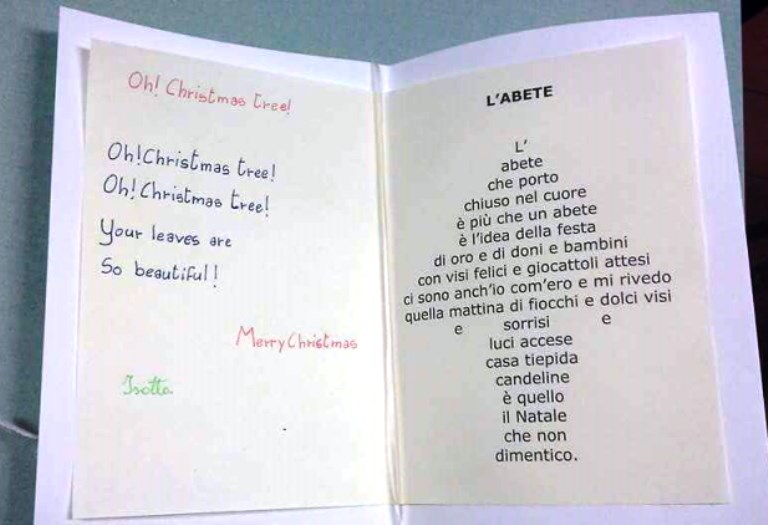 Oh! Christmas tree!
Oh!Christmas tree!
Oh! Christmas tree!
Your leaves are
So beautiful!
Merry Christmas
Isotta
L'ABETE
L'
abete
che porto
chiuso nel cuore
è più che un abete
è l'idea della festa
di oro e di doni e bambini
con visi felici e giocattoli attesi
ci sono anch'io com'ero e mi rivedo
quella mattina di fiocchi e dolci visi
e sorrisi e
luci accese
casa tiepida
candeline
è quello
il Natale
che non
dimentico.